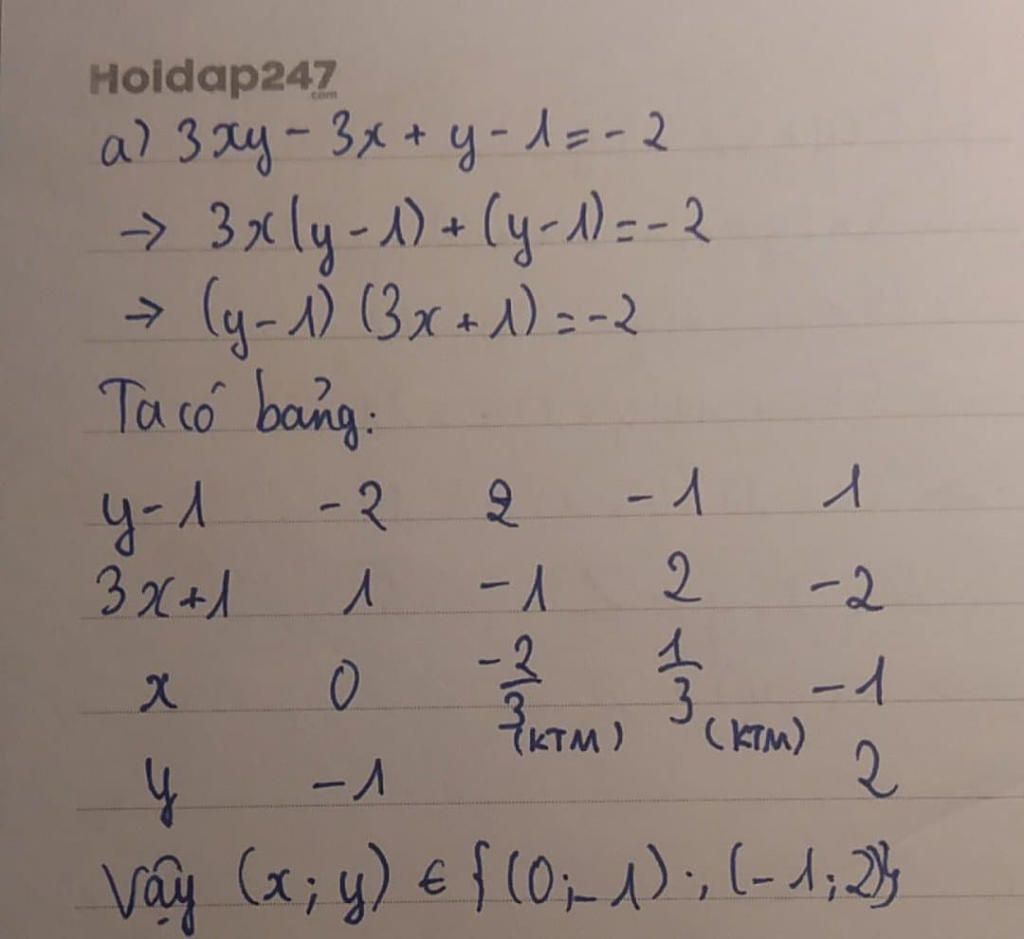 Hoidap247
.com
a) 3xy - 3x + y - 1 = - 2
→ 3x(y - 1) + (y - 1) = - 2
→ (y - 1) (3x + 1) = - 2
Ta có bảng:
y - 1 - 2 2 - 1 1
3x + 1 1 - 1 2 - 2
x 0 -2/3 (KTM) 1/3 (KTM) - 1
y - 1 2
Vậy (x; y) ∈ {(0; - 1) ; (- 1; 2)}